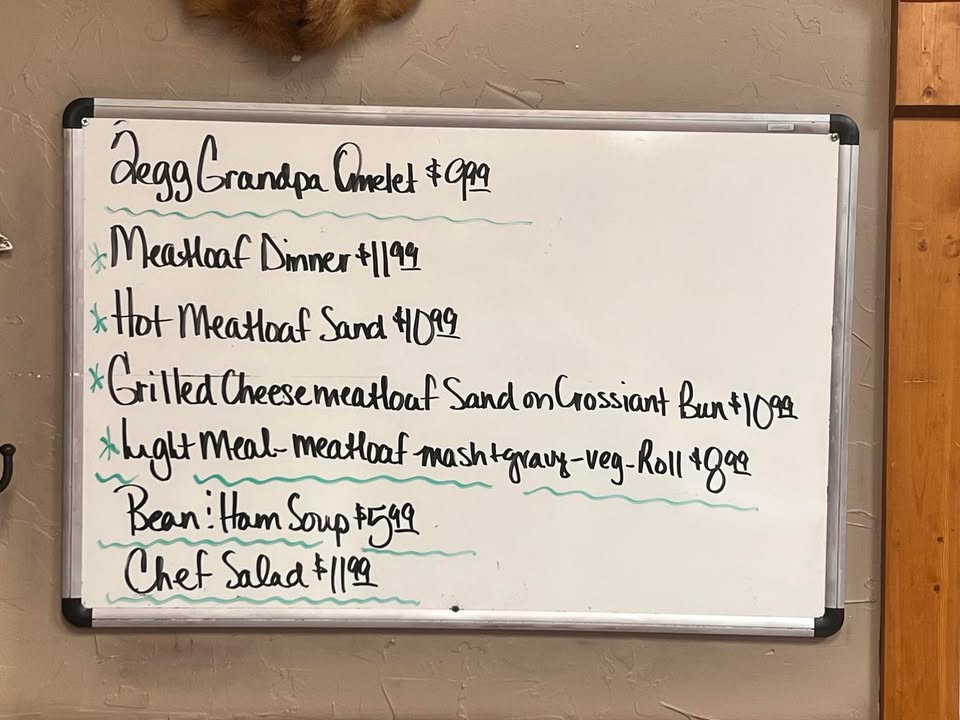 2egg Grandpa Omelet $9.99
* Meatloaf Dinner $11.99
* Hot Meatloaf Sand $10.99
* Grilled Cheese meatloaf Sand on Crossiant Bun $10.99
* Light Meal - meatloaf - mash + gravy - veg - Roll $8.99
Bean : Ham Soup $5.99
Chef Salad $11.99